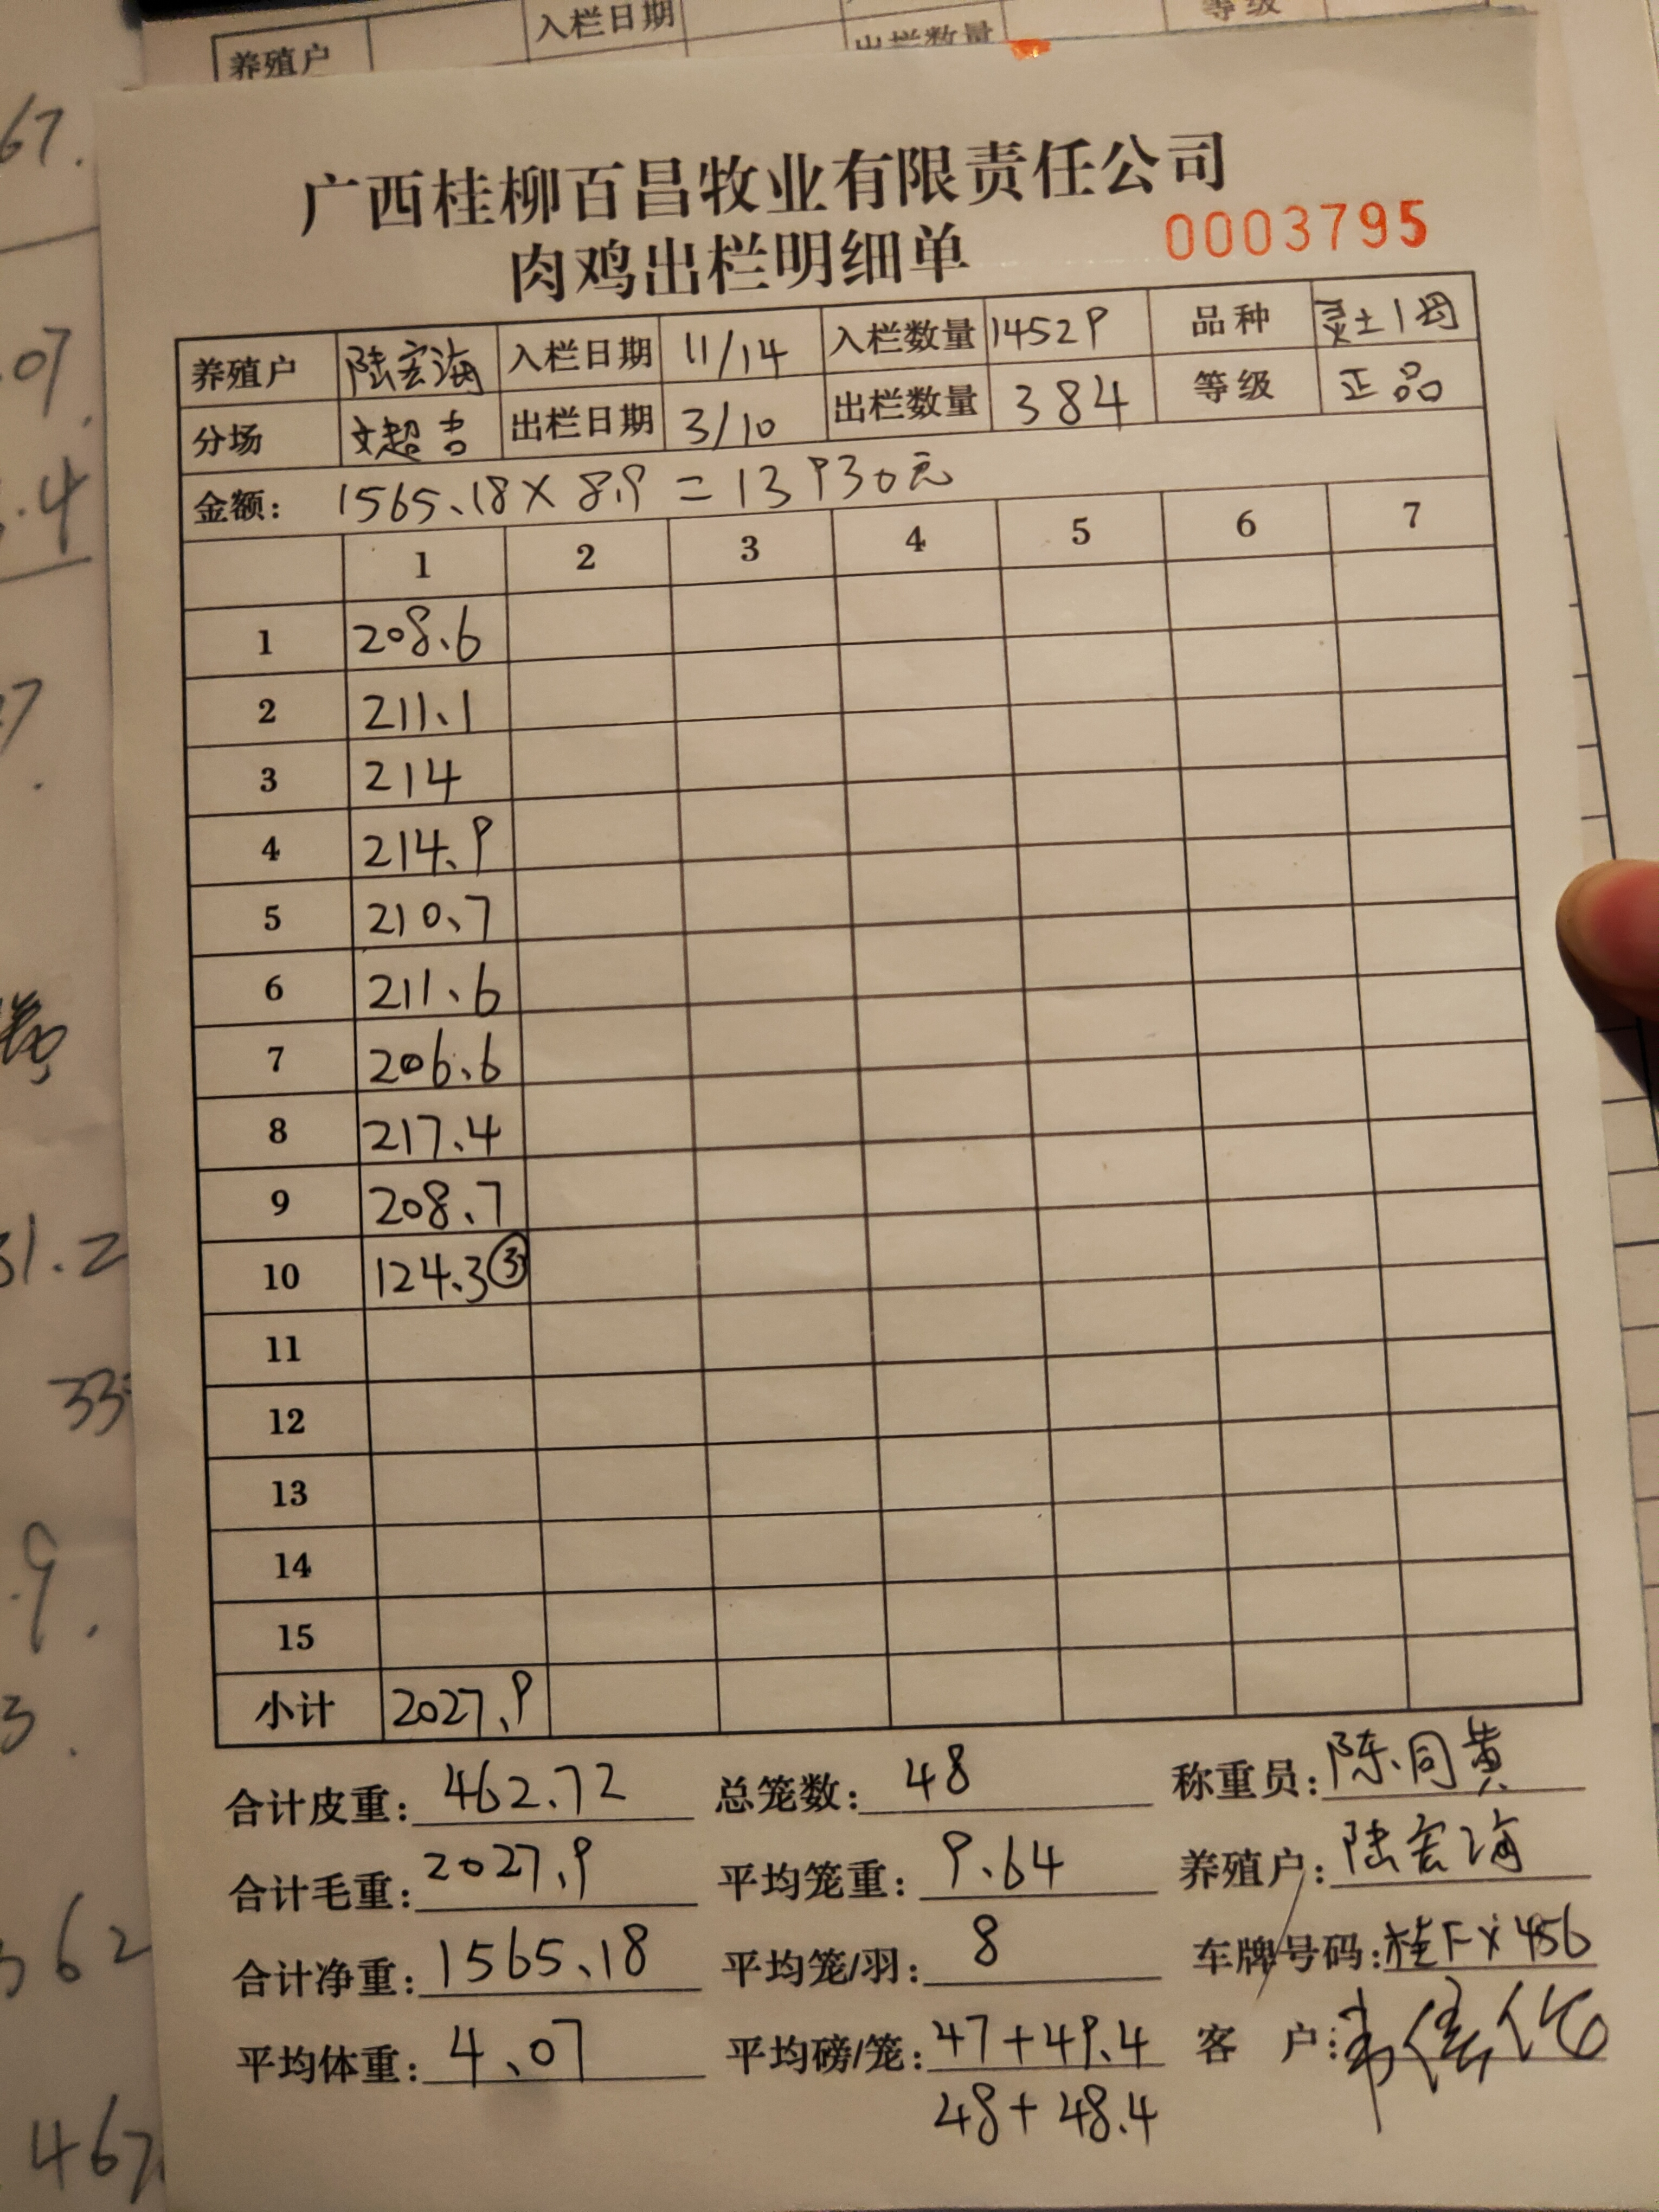 养殖户 入栏日期 出栏数量 等级
广西桂柳百昌牧业有限责任公司
肉鸡出栏明细单 0003795
养殖户 陆宏海 入栏日期 11/14 入栏数量 14529 品种 灵土1母
分场 文超吉 出栏日期 3/10 出栏数量 384 等级 正品
金额: 1565.18×8.9=13930元
1 2 3 4 5 6 7
1 208.6
2 211.1
3 214
4 214.9
5 210.7
6 211.6
7 206.6
8 217.4
9 208.7
10 124.3③
11
12
13
14
15
小计 2027.9
合计皮重: 462.72 总笼数: 48 称重员: 陈同黄
合计毛重: 2027.9 平均笼重: 9.64 养殖户: 陆宏海
合计净重: 1565.18 平均笼/羽: 8 车牌号码: 桂FX456
平均体重: 4.07 平均磅/笼: 47+49.4 客 户:
48+48.4
67.
.07
.4
31.2
33
.9.
3.
362
467